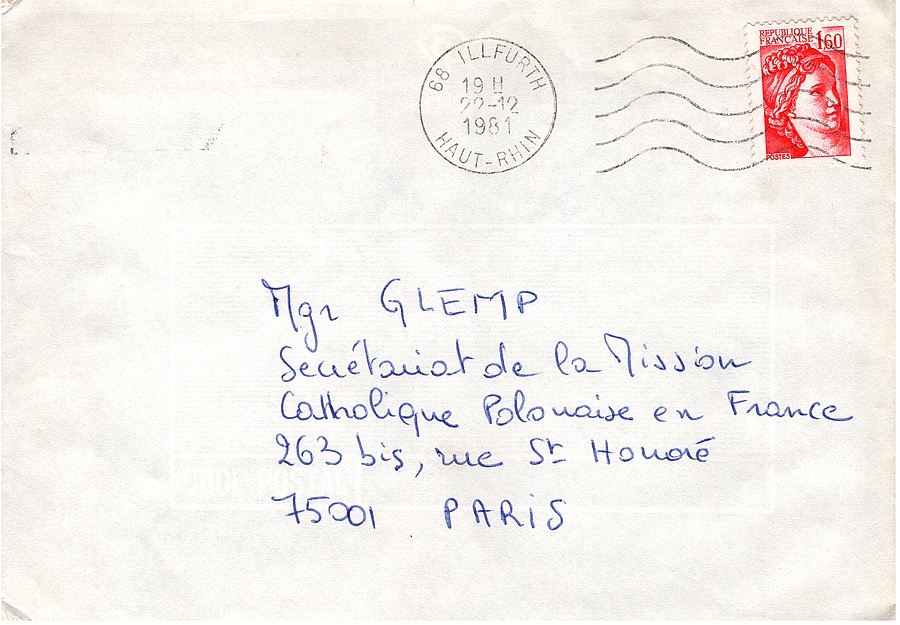 68 ILLFURTH
19 H
22-12
1981
HAUT-RHIN
REPUBLIQUE
FRANÇAISE 1,60
POSTES
Mgr GLEMP
Secrétariat de la Mission
Catholique Polonaise en France
263 bis, rue St Honoré
75001 PARIS